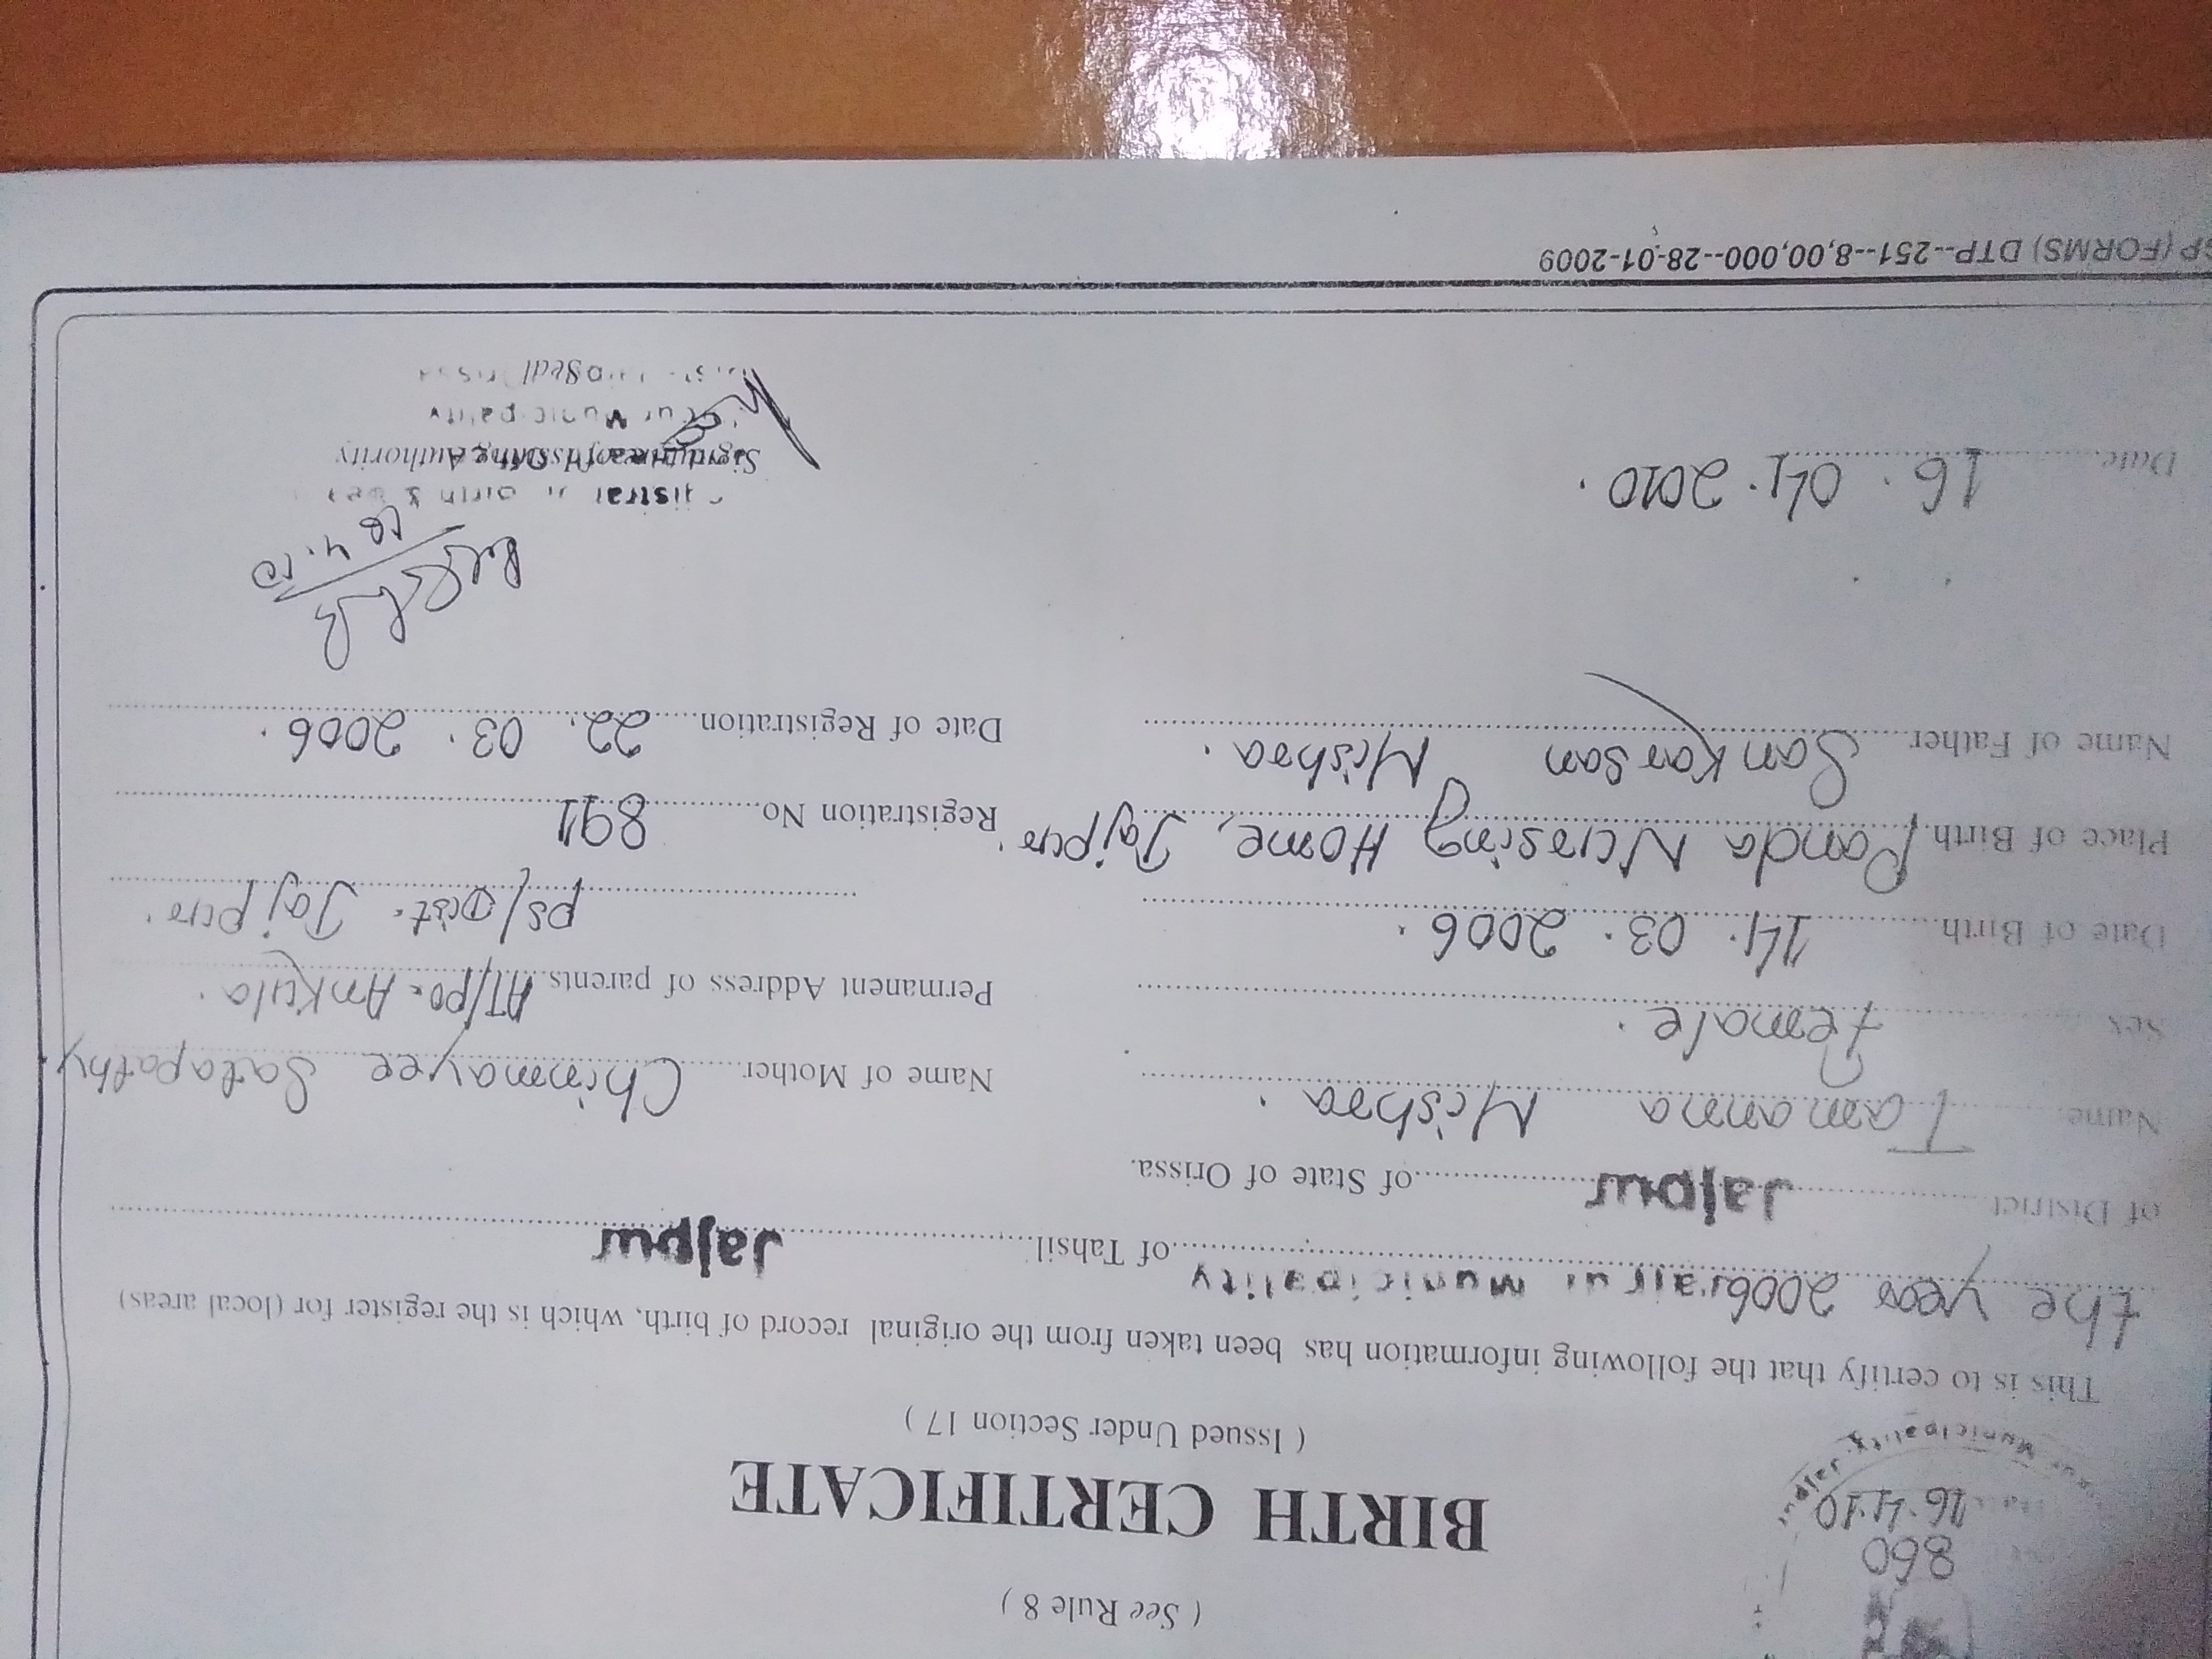 ( See Rule 8 )
860
16.4.10
BIRTH CERTIFICATE
( Issued Under Section 17 )
Municipality
This is to certify that the following information has been taken from the original record of birth, which is the register for (local areas)
the year 2006 Municipality of Tahsil Jajpur
of District Jajpur of State of Orissa.
Name Tamanna Mishra.
Name of Mother Chinmayee Satapathy
Sex Female.
Permanent Address of parents AT/PO- Ankula.
Date of Birth 14. 03. 2006.
PS/Dist- Jajpur.
Place of Birth Panda Nursing Home, Jajpur.
Registration No. 891
Name of Father Sankarsan Mishra.
Date of Registration 22. 03. 2006.
Date 16. 04. 2010.
Signature of Issuing Authority
Municipality
Seal
(FORMS) DTP--251--8,00,000--28-01-2009